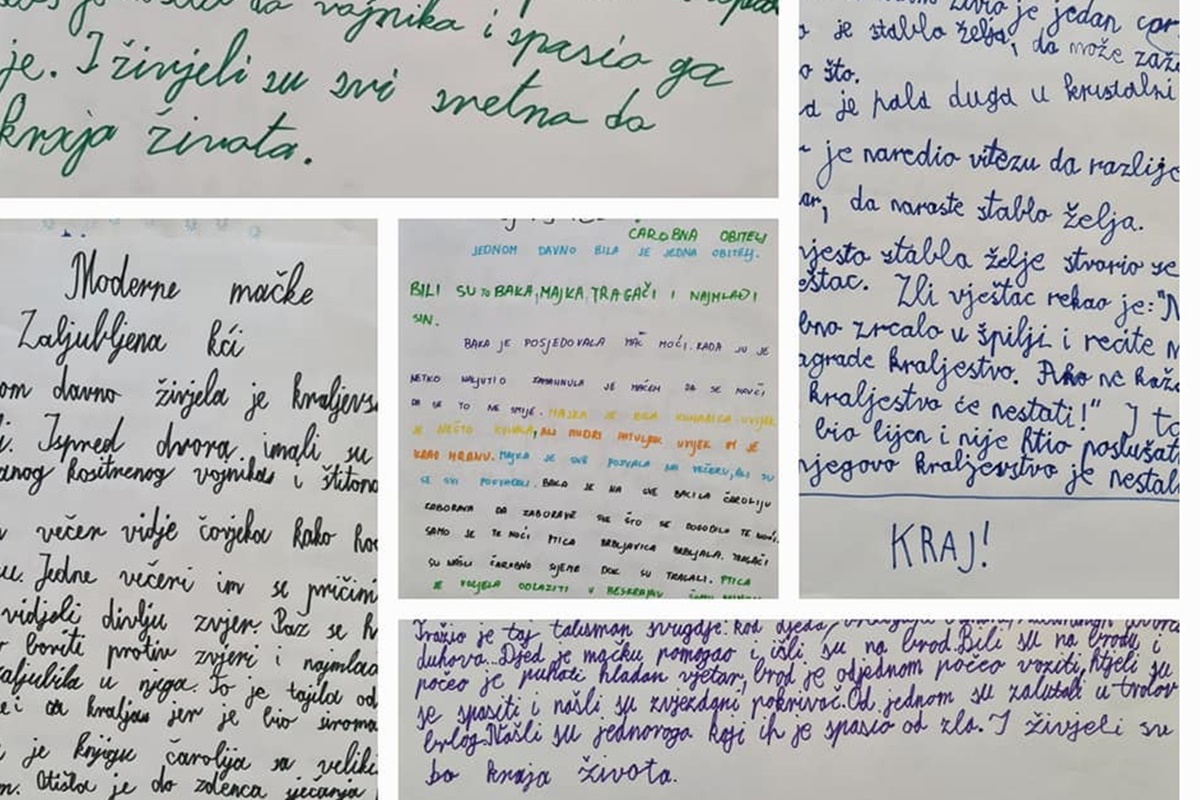 do vojnika i spasio ga
je. I živjeli su svi sretna do
kraja života.
je jedan
je stablo želja, da može
o što.
je pala duga u kristalni
je naredio vitezu da razlije
da naraste stablo želja.
stabla želje stvorio se
Zli vještac rekao je: "N
zrcalo u špilji i recite
kraljestvo. Ako ne
kraljestvo će nestati!" I
bio lijen i nije htio poslušat
njegovo kraljevstvo je nestal
KRAJ!
Moderne mačke
Zaljubljena kći
om davno živjela je kraljevs
i. Ispred dvora imali su
kositrenog vojnika i
večer vidje čovjeka kako
u. Jedne večeri im se pričini
vidjeli divlju zvjer. Dar se
boriti protiv zvjeri i najmlađ
zaljubila u njega. To je tajila od
kralja jer je bio siroma
je knjigu čarolija sa velik
m. Otišla je do zdenca
ČAROBNA OBITELJ
JEDNOM DAVNO BILA JE JEDNA OBITELJ.
BILI SU TO BAKA, MAJKA, TRAGAČI I NAJMLAĐI
SIN.
BAKA JE POSJEDOVALA MAČ MOĆI. KADA JU JE
NETKO NALJUTIO ZAMAHNULA JE MAČEM DA SE
DA SE TO NE SMIJE. MAJKA JE BILA KUHARICA. UVIJEK
JE NEŠTO KUHALA, ALI MUDRI PATULJAK UVIJEK BI JE
KRAO HRANU. MAJKA JE SVE POZVALA NA VEČERU, ALI SU
SE SVI POSVAĐALI. BAKA JE NA SVE BACILA ČAROLIJU
ZABORAVA DA ZABORAVE SVE ŠTO SE DOGODILO TE NOĆI.
SAMO JE TE NOĆI PTICA BRBLJAVICA BRBLJALA. TRAGAČI
SU NAŠLI ČAROBNO SJEME DOK SU TRAGALI. PTICA
JE VOLJELA ODLAZITI U BESKRAJNU
Tražio je taj talisman svugdje: kod djeda,
duhova... Djed je mačku pomogao i išli su na brod. Bili su na brodu i
počeo je puhati hladan vjetar, brod je odjednom počeo voziti, htjeli su
se spasiti i našli su zvjezdani pokrivač. Od jednom su zalutali u trolov
brlog. Našli su jednoroga koji ih je spasio od zla. I živjeli su
do kraja života.